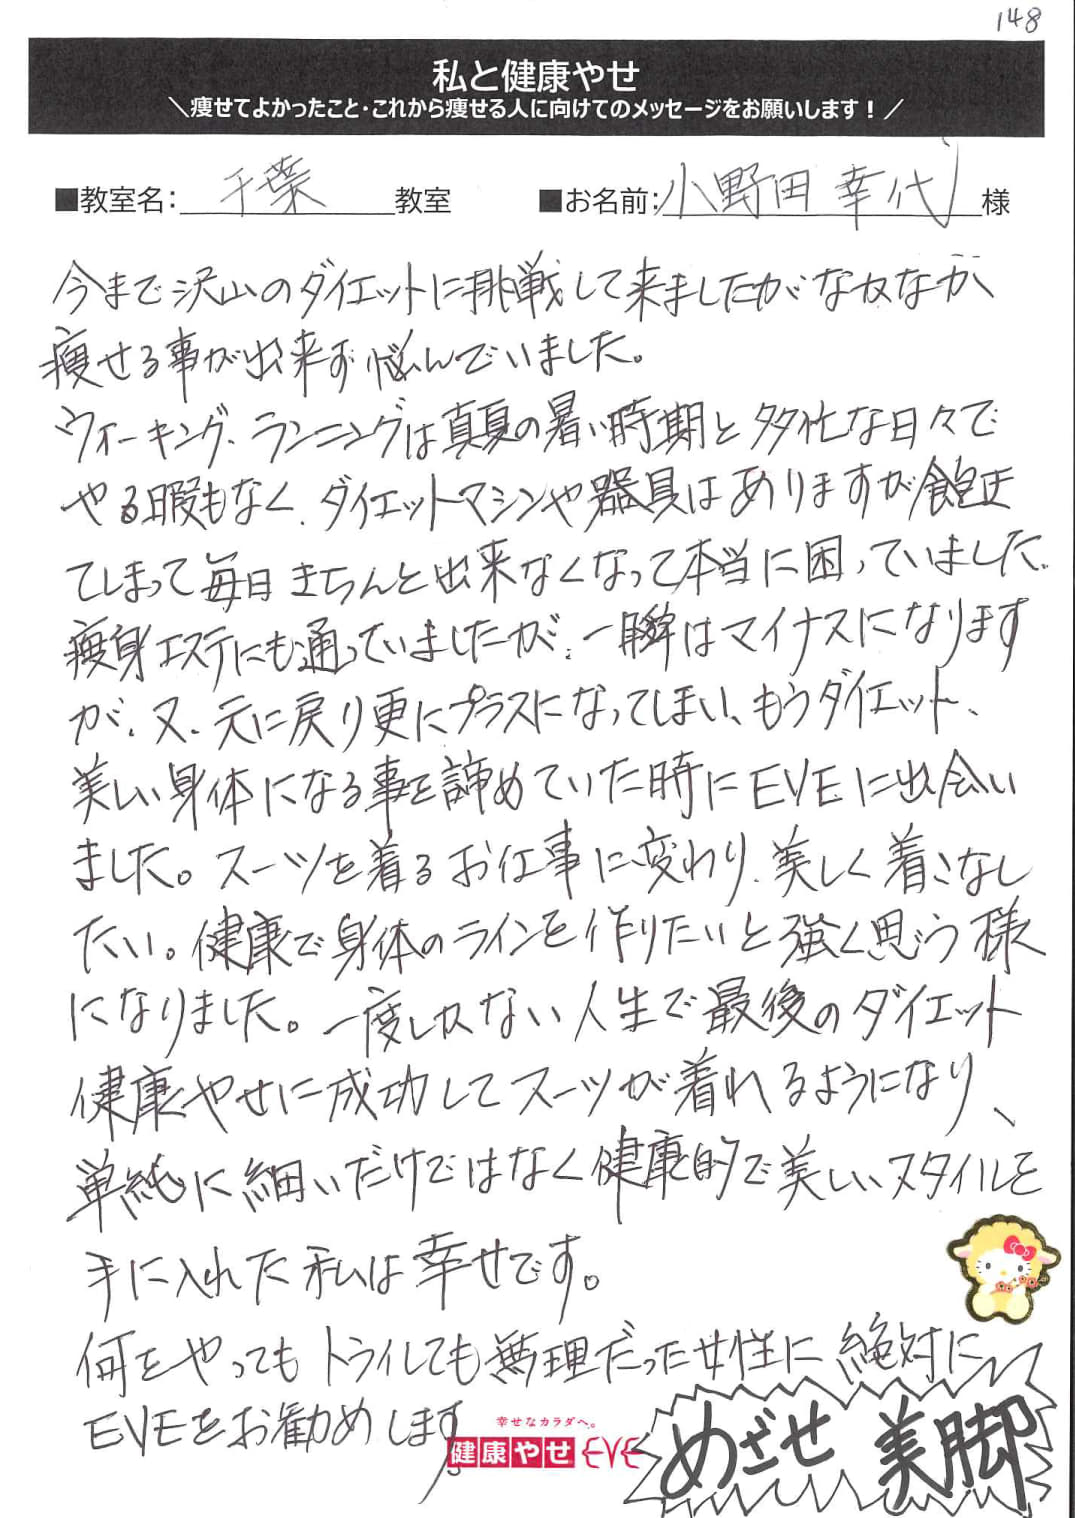 148
私と健康やせ
＼痩せてよかったこと・これから痩せる人に向けてのメッセージをお願いします！／
■教室名：千葉教室 ■お名前：小野田 幸代 様
今まで沢山のダイエットに挑戦して来ましたがなかなか
痩せる事が出来ず悩んでいました。
ウォーキング、ランニングは真夏の暑い時期と多忙な日々で
やる暇もなく、ダイエットマシンや器具はありますが飽き
てしまって毎日きちんと出来なくなって本当に困っていました。
痩身エステにも通っていましたが、一瞬はマイナスになります
が、又、元に戻り更にプラスになってしまい、もうダイエット、
美しい身体になる事を諦めていた時にEVEに出会い
ました。スーツを着るお仕事に変わり、美しく着こなし
たい。健康で身体のラインを作りたいと強く思う様
になりました。一度しかない人生で最後のダイエット
健康やせに成功してスーツが着れるようになり、
単純に細いだけではなく健康的で美しいスタイルを
手に入れた私は幸せです。
何をやってもトライしても無理だった女性に絶対に
EVEをお勧めします。
幸せなカラダへ。
健康やせ EVE
めざせ 美脚